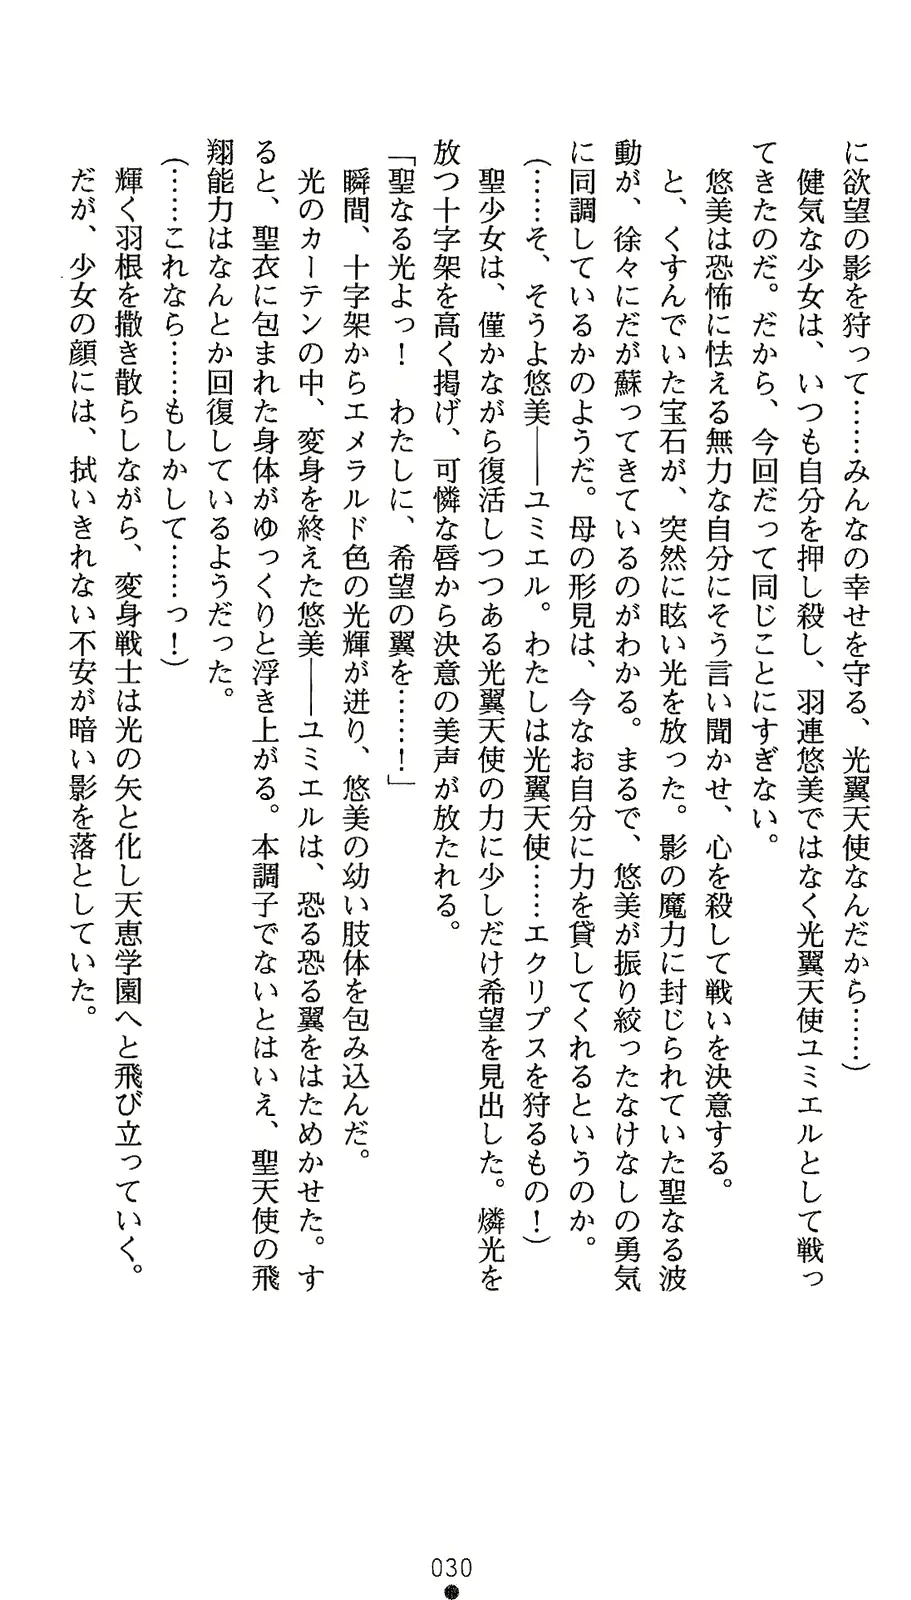 に欲望の影を狩って……みんなの幸せを守る、光翼天使なんだから……）
　健気な少女は、いつも自分を押し殺し、羽連悠美ではなく光翼天使ユミエルとして戦っ
てきたのだ。だから、今回だって同じことにすぎない。
　悠美は恐怖に怯える無力な自分にそう言い聞かせ、心を殺して戦いを決意する。
　と、くすんでいた宝石が、突然に眩い光を放った。影の魔力に封じられていた聖なる波
動が、徐々にだが蘇ってきているのがわかる。まるで、悠美が振り絞ったなけなしの勇気
に同調しているかのようだ。母の形見は、今なお自分に力を貸してくれるというのか。
（……そ、そうよ悠美――ユミエル。わたしは光翼天使……エクリプスを狩るもの！）
　聖少女は、僅かながら復活しつつある光翼天使の力に少しだけ希望を見出した。燐光を
放つ十字架を高く掲げ、可憐な唇から決意の美声が放たれる。
「聖なる光よっ！　わたしに、希望の翼を……！」
　瞬間、十字架からエメラルド色の光輝が迸り、悠美の幼い肢体を包み込んだ。
　光のカーテンの中、変身を終えた悠美――ユミエルは、恐る恐る翼をはためかせた。す
ると、聖衣に包まれた身体がゆっくりと浮き上がる。本調子でないとはいえ、聖天使の飛
翔能力はなんとか回復しているようだった。
（……これなら……もしかして……っ！）
　輝く羽根を撒き散らしながら、変身戦士は光の矢と化し天恵学園へと飛び立っていく。
　だが、少女の顔には、拭いきれない不安が暗い影を落としていた。
030